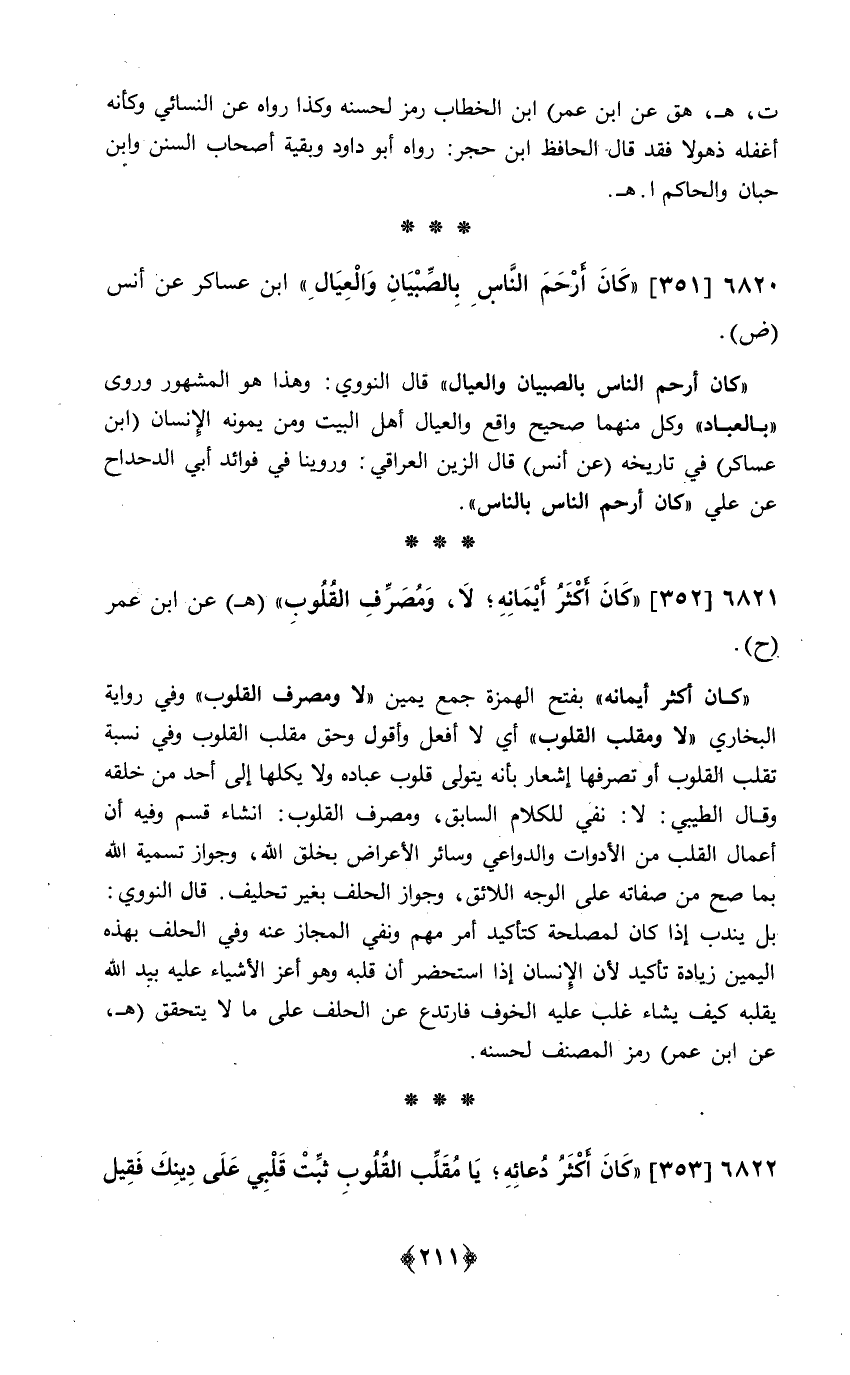 ت، هـ، هق عن ابن عمر) ابن الخطاب رمز لحسنه وكذا رواه عن النسائي وكأنه
أغفله ذهولا فقد قال الحافظ ابن حجر: رواه أبو داود وبقية أصحاب السنن وابن
حبان والحاكم ا. هـ.
* * *
٦٨٢٠ [٣٥١] «كَانَ أَرْحَمَ النَّاسِ بِالصِّبْيَانِ وَالْعِيَالِ» ابن عساكر عن أنس
(ض).
«كان أرحم الناس بالصبيان والعيال» قال النووي: وهذا هو المشهور وروى
«بـالعبـاد» وكل منهما صحيح واقع والعيال أهل البيت ومن يمونه الإنسان (ابن
عساكر) في تاريخه (عن أنس) قال الزين العراقي: وروينا في فوائد أبي الدحداح
عن علي «كان أرحم الناس بالناس».
* * *
٦٨٢١ [٣٥٢] «كَانَ أَكْثَرُ أَيْمَانِهِ؛ لَا، وَمُصَرِّفِ القُلُوبِ» (هـ) عن ابن عمر
(ح).
«كـان أكثر أيمانه» بفتح الهمزة جمع يمين «لا ومصرف القلوب» وفي رواية
البخاري «لا ومقلب القلوب» أي لا أفعل وأقول وحق مقلب القلوب وفي نسبة
تقلب القلوب أو تصرفها إشعار بأنه يتولى قلوب عباده ولا يكلها إلى أحد من خلقه
وقـال الطيبي: لا: نفي للكلام السابق، ومصرف القلوب: انشاء قسم وفيه أن
أعمال القلب من الأدوات والدواعي وسائر الأعراض بخلق الله، وجواز تسمية الله
بما صح من صفاته على الوجه اللائق، وجواز الحلف بغير تحليف. قال النووي:
بل يندب إذا كان لمصلحة كتأكيد أمر مهم ونفي المجاز عنه وفي الحلف بهذه
اليمين زيادة تأكيد لأن الإنسان إذا استحضر أن قلبه وهو أعز الأشياء عليه بيد الله
يقلبه كيف يشاء غلب عليه الخوف فارتدع عن الحلف على ما لا يتحقق (هـ،
عن ابن عمر) رمز المصنف لحسنه.
* * *
٦٨٢٢ [٣٥٣] «كَانَ أَكْثَرُ دُعائِهِ؛ يَا مُقَلِّب القُلُوبِ ثَبِّتْ قَلْبِي عَلَى دِينِكَ فَقِيل
﴿٢١١﴾